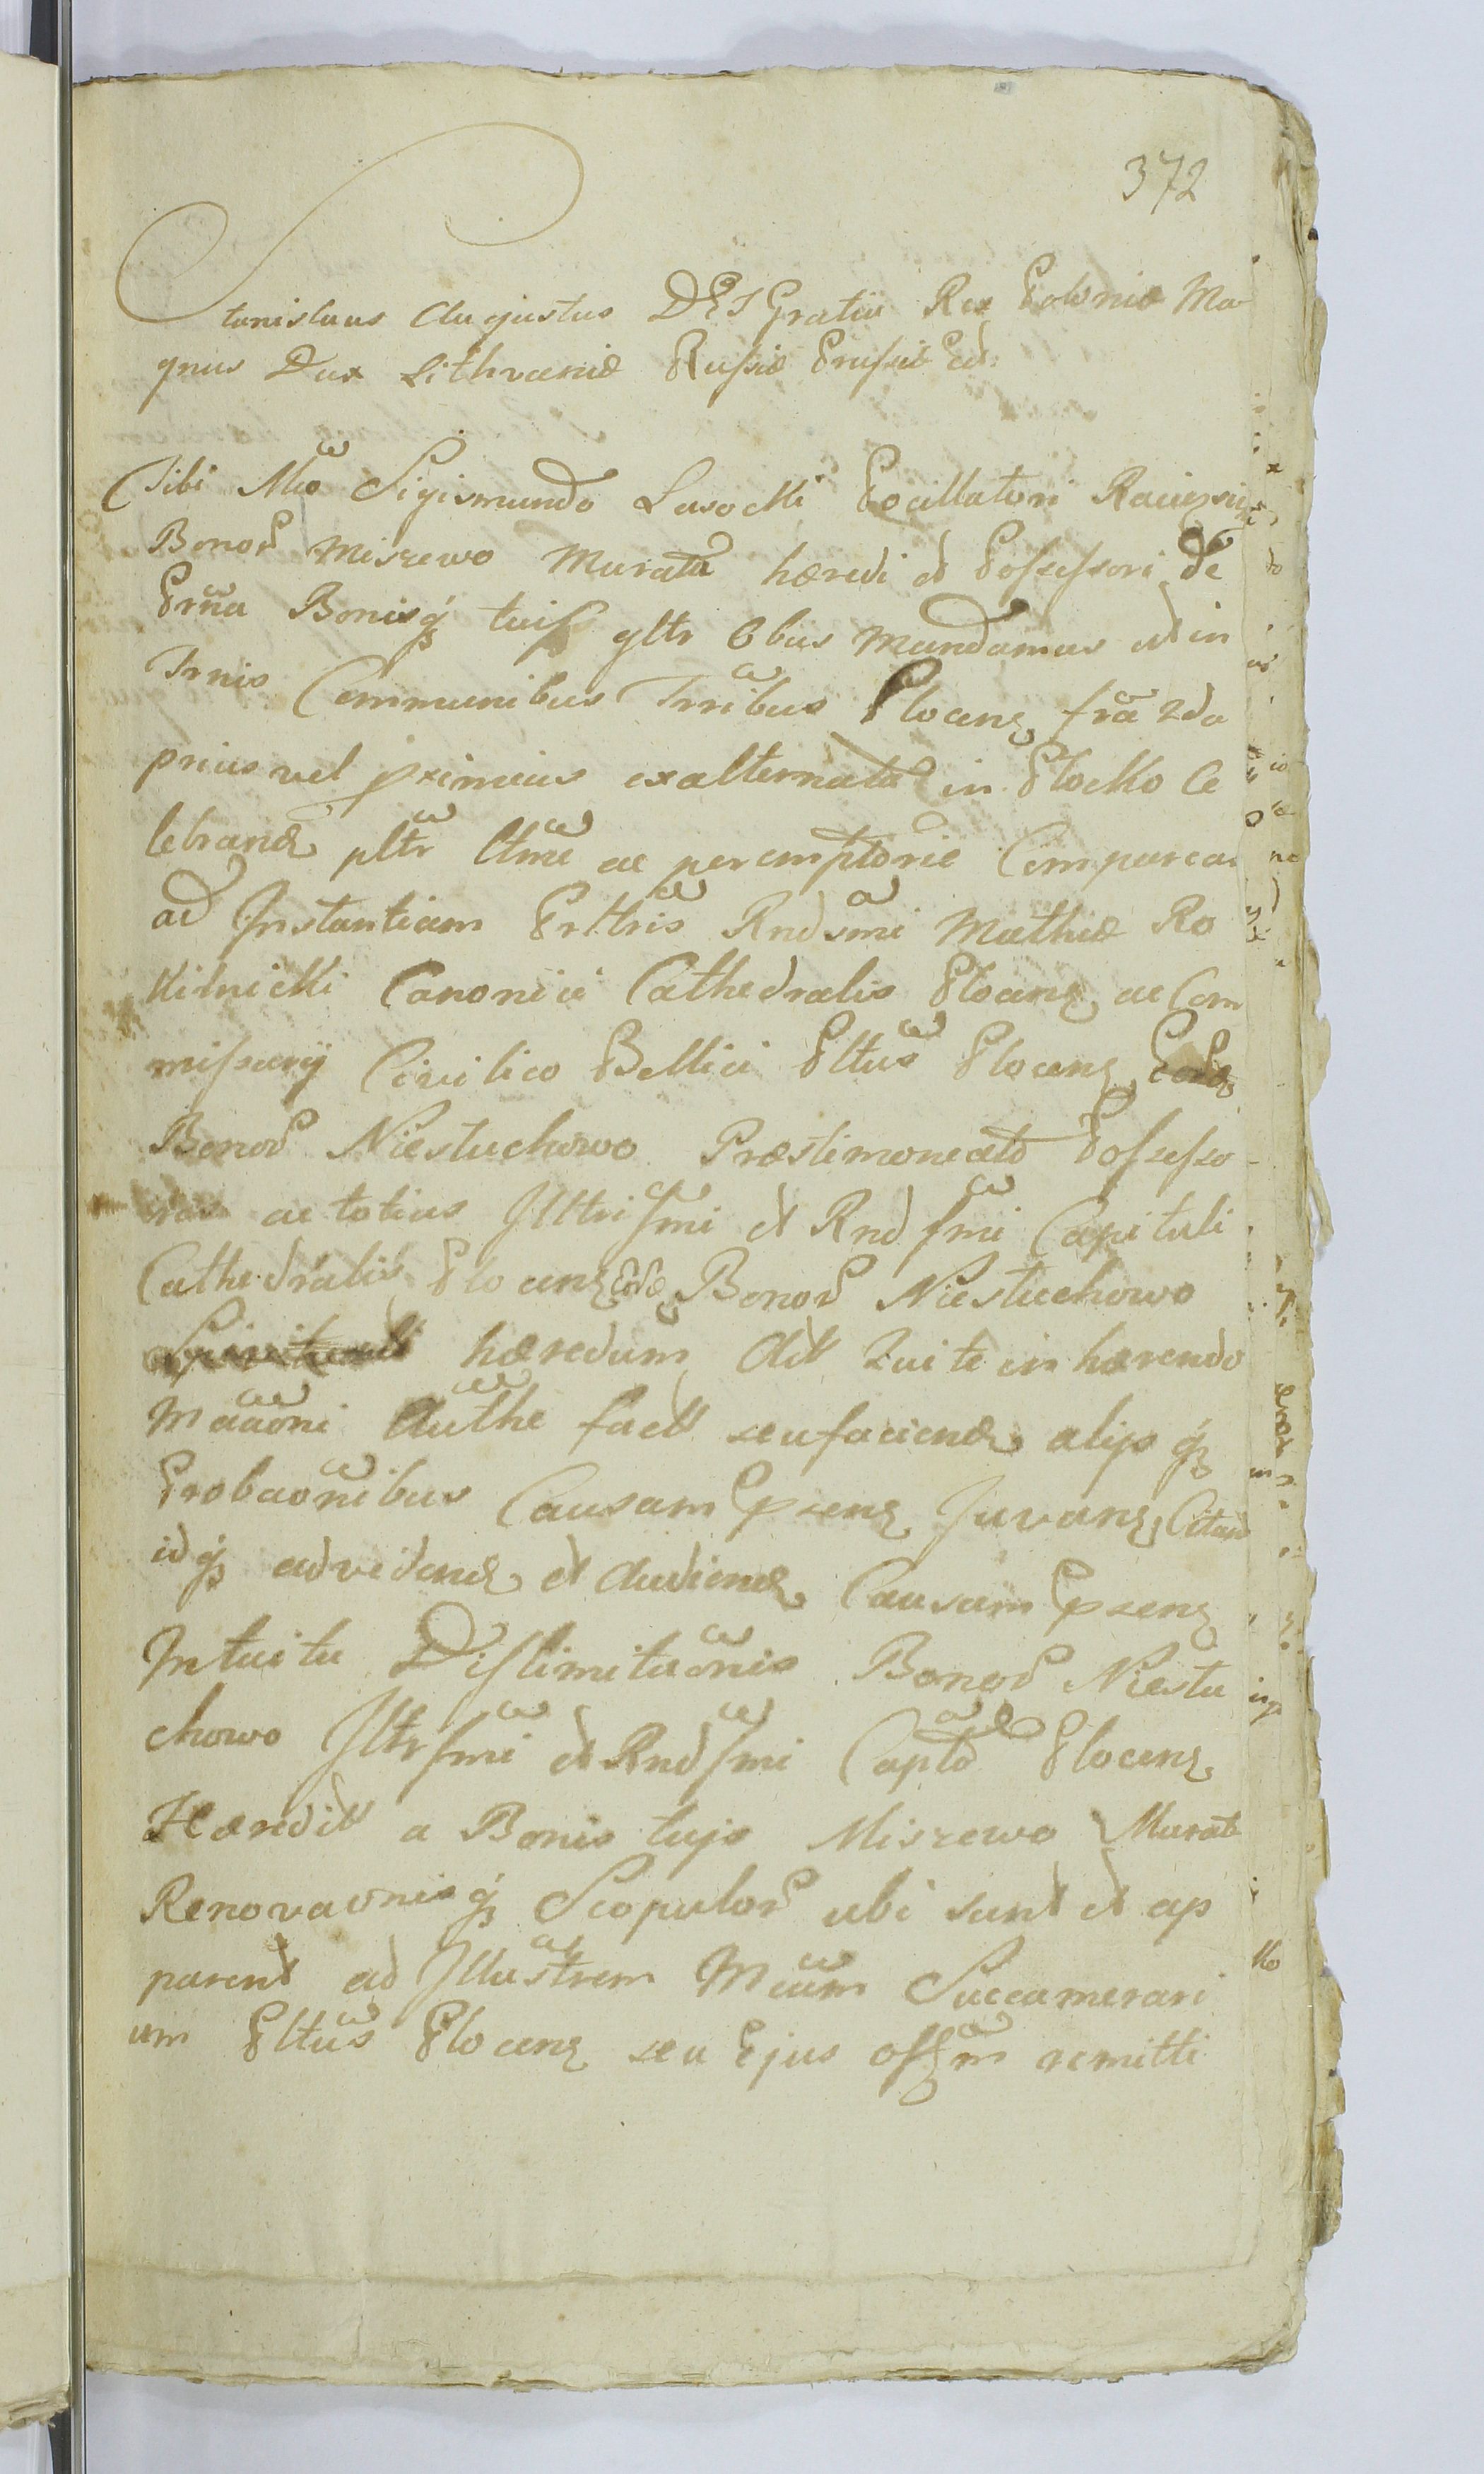 372
Stanislaus Augustus DEI Gratia Rex Poloniæ Ma
gnus Dux Lithvaniæ Rusſiæ Prusſiæ Ect:
Tibi Mco Sigismundo Lasocki Pocillatori Raciązsi
Bonor Miszewo Murata hæredi et Posſesſori de
Prna Bonisq tuiſs gltr Obus Mandamus ut in
Trnis Communibus Trribus Plocens fra 2da
prius vel pximius exalternata in Plocko Ce
lebrand pltr ltme ac peremptorie Compareas
ad Instantiam Prttris Rndsmi Mathiæ Ro
kitnicki Canonici Cathedralis Plocens ac Com
misſarij Civilico Bellici Pltus Plocens
Bonor Niestuchowo Præstimoneato Posſesſo
ris ac totius Illtrisſmi et Rndſmi Capituli
Cathedralis Plocens Bonor Niestuchowo
hæredum Act Qui te in hærendo
Mcaoni Authe fact seu faciend alijs q
Probaonibus Causam Ppsens Juvans Citant
idq ad vidend et Audiend Causam Ppsens
Intuitu Disſlimitaonis Bonor Niestu
chowo Illtrſmi et Rndſmi Capto Plocens
Hæredit a Bonis tujs Miszewo Murate
Renovaonisq Scopulor ubi sunt et ap
parent ad Illustrem Mcum Succamerari
um Pltus Plocens seu Ejus offm remitti